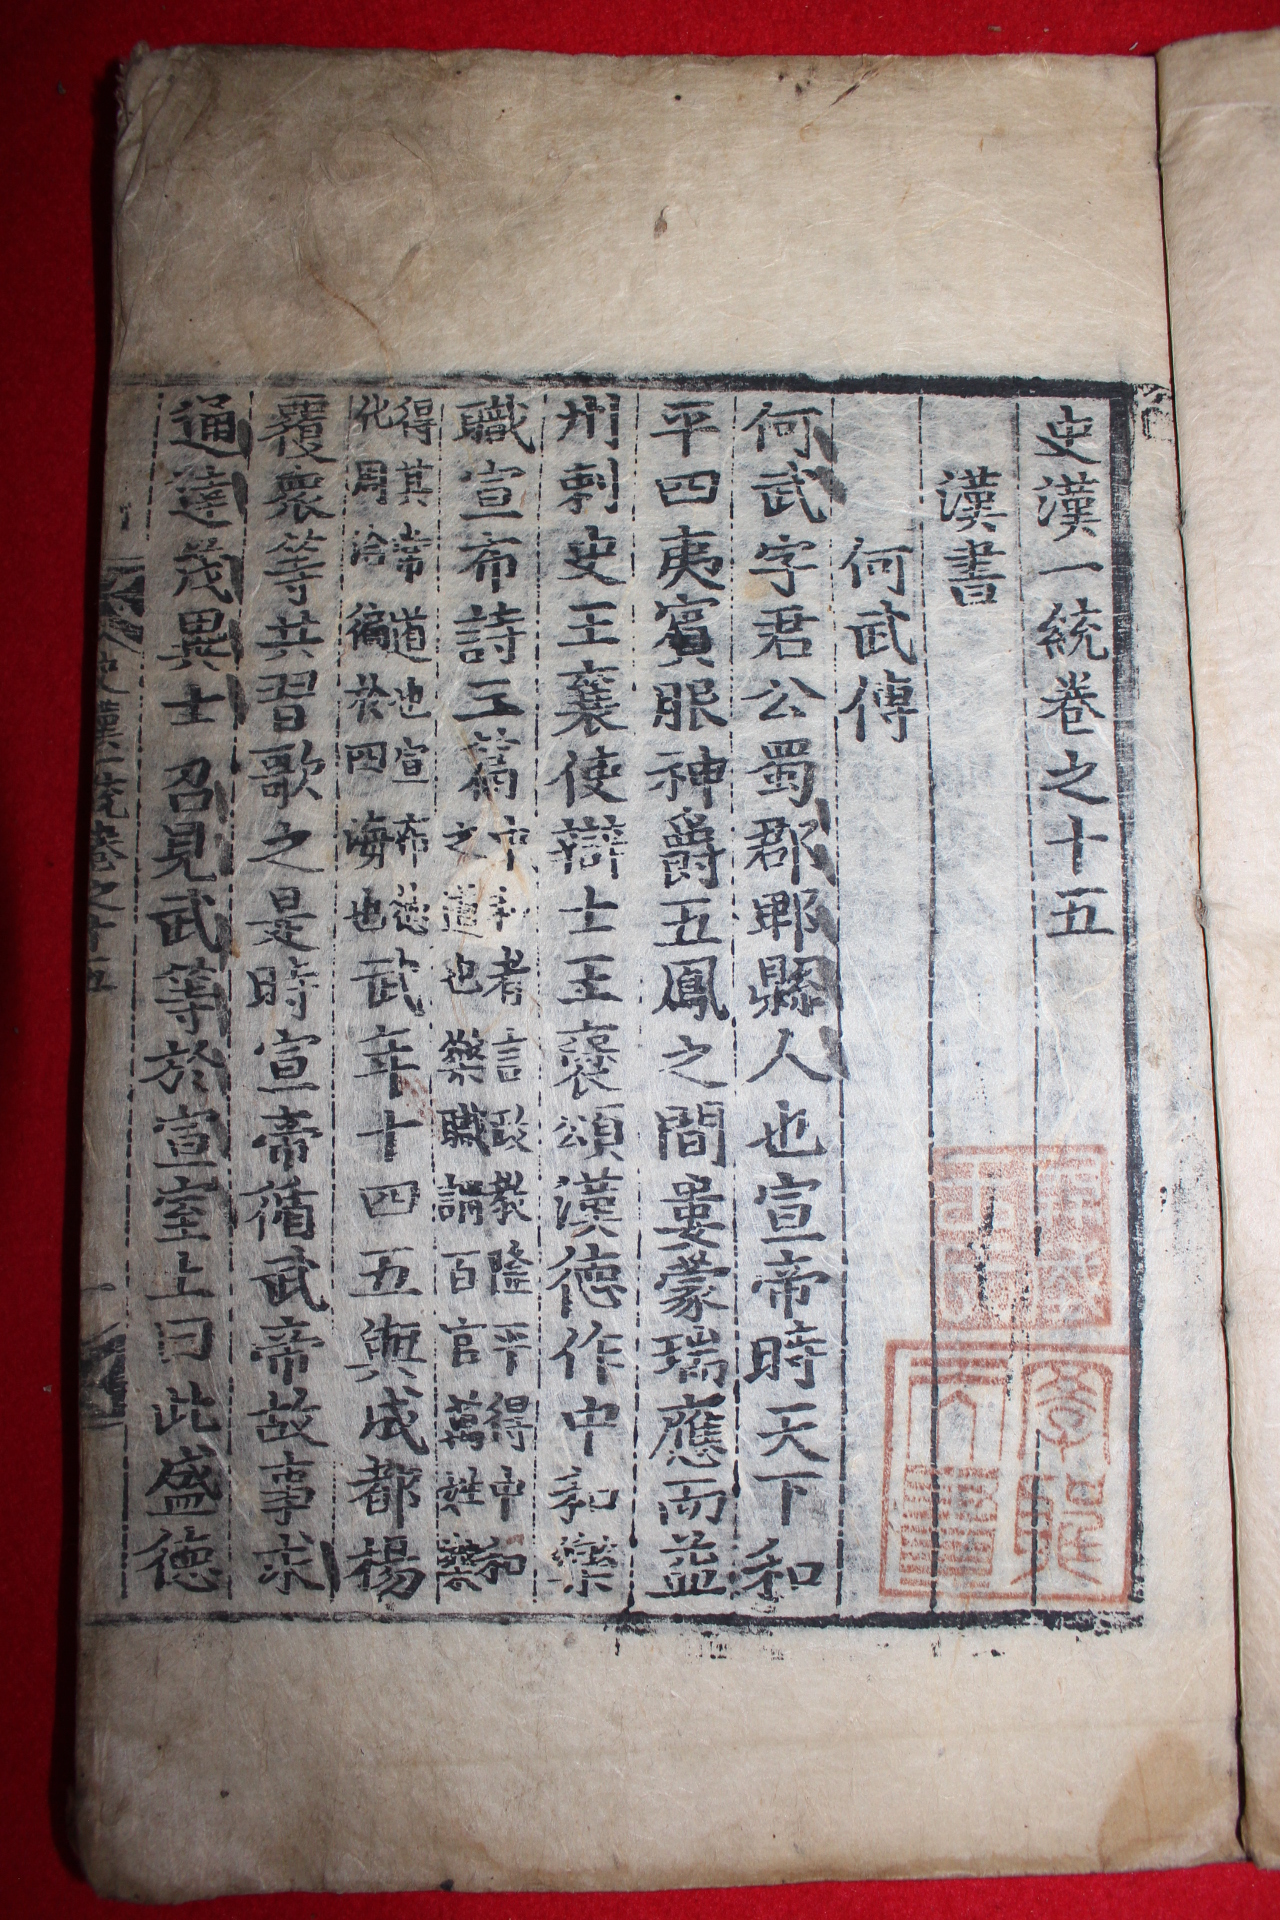 史漢一統卷之十五
漢書
何武傳
何武字君公蜀郡郫縣人也宣帝時天下和
平四夷賓服神爵五鳳之間婁蒙瑞應而益
州刺史王襄使辯士王褒頌漢德作中和樂
職宣布詩三篇中和者言政教隆平得中和之道也樂職謂百官萬姓樂
得其常道也宣布德化周洽徧於四海也武年十四五與成都楊
覆衆等共習歌之是時宣帝循武帝故事求
通達茂異士召見武等於宣室上曰此盛德
史漢一統卷之十五 一